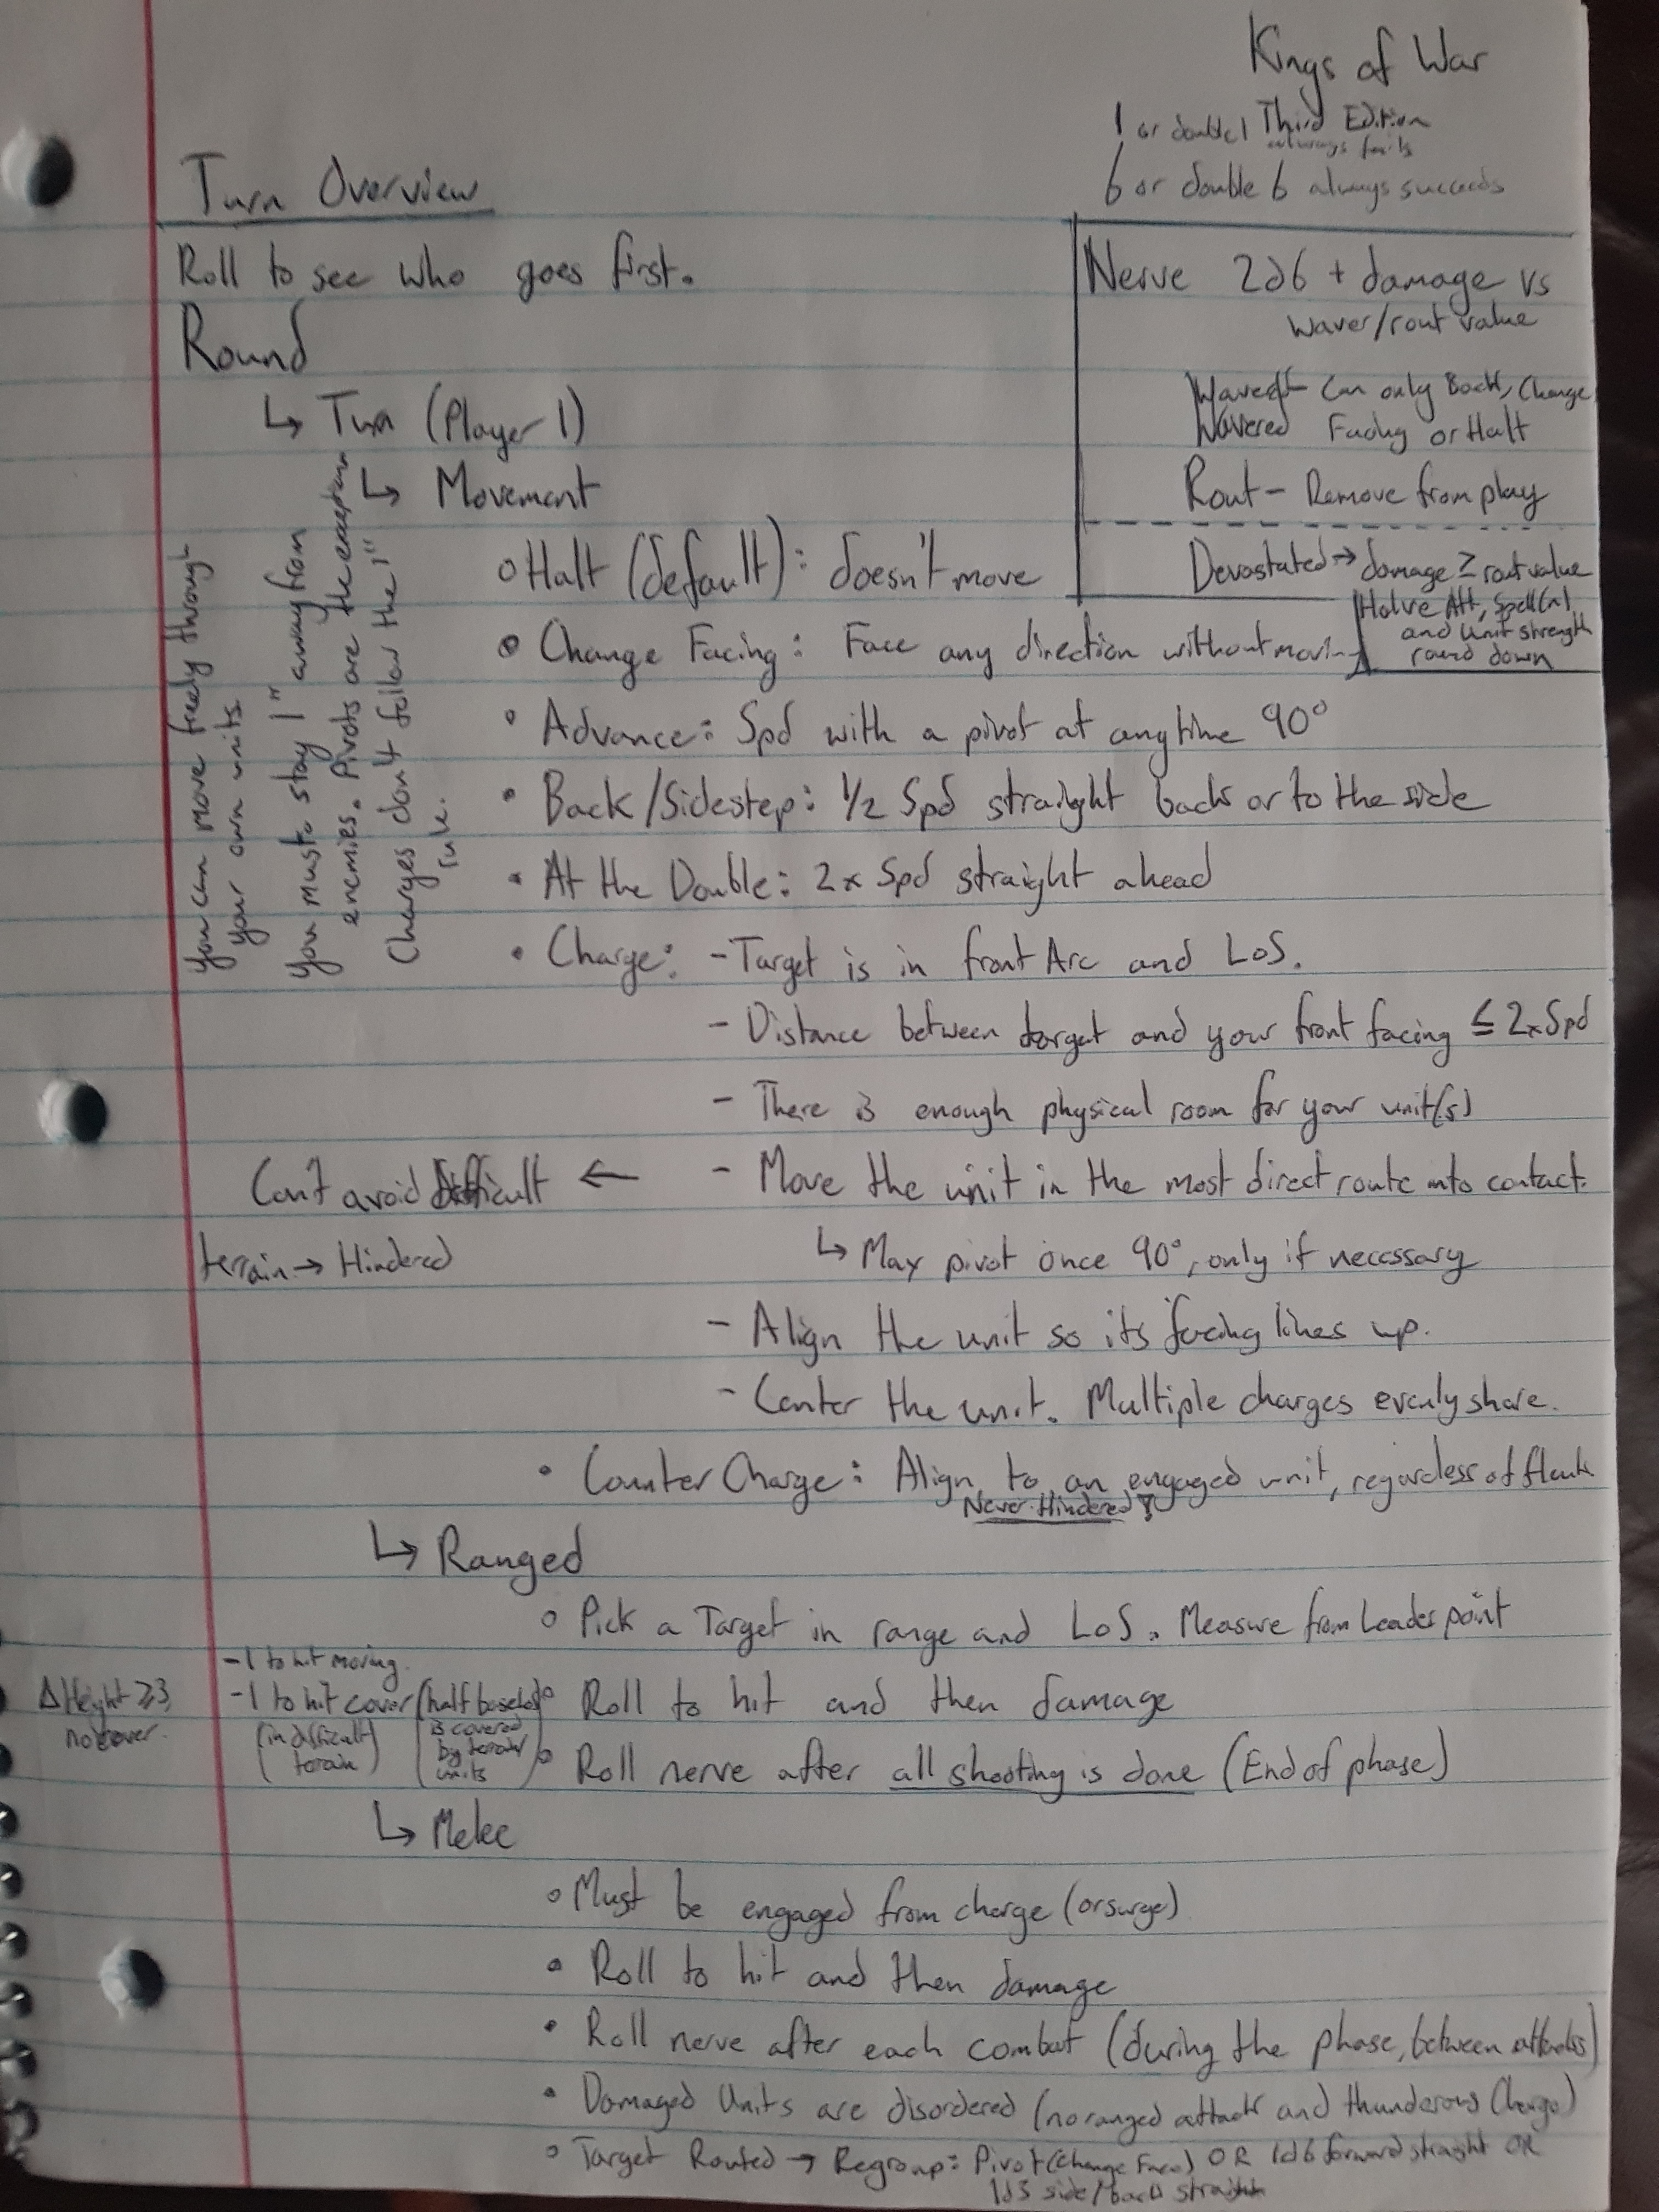 Kings of War
Third Edition
1 or double 1 always fails
6 or double 6 always succeeds
Turn Overview
Roll to see who goes first.
Round
↳ Turn (Player 1)
↳ Movement
○ Halt (default): doesn't move
• Change Facing: Face any direction without moving
• Advance: Spd with a pivot at anytime 90°
• Back/Sidestep: 1/2 Spd straight back or to the side
• At the Double: 2x Spd straight ahead
• Charge: - Target is in front Arc and LoS.
- Distance between target and your front facing ≤ 2xSpd
- There is enough physical room for your unit(s)
- Move the unit in the most direct route into contact.
↳ Max pivot once 90°, only if necessary
- Align the unit so its facing lines up.
- Center the unit. Multiple charges evenly share.
• Counter Charge: Align to an engaged unit, regardless of flank
Never Hindered!
You can move freely through
your own units.
You must stay 1" away from
enemies. Pivots are the exception
Charges don't follow the 1"
rule.
Can't avoid Difficult ←
terrain → Hindered
Nerve 2d6 + damage vs
Waver/rout value
Wavered - Can only Back, Change
Wavered Facing or Halt
Rout - Remove from play
Devastated → damage ≥ rout value
Halve Att, Spell(n)
and Unit strength
round down
↳ Ranged
○ Pick a Target in range and LoS. Measure from Leader point
○ Roll to hit and then damage
○ Roll nerve after all shooting is done (End of phase)
-1 to hit moving.
-1 to hit cover (half base
is covered
by terrain/
units)
(in difficult
terrain)
Δ Height ≥ 3,
no cover.
↳ Melee
○ Must be engaged from charge (or surge)
• Roll to hit and then damage
• Roll nerve after each combat (during the phase, between attacks)
• Damaged Units are disordered (no ranged attack and thunderous Charge)
○ Target Routed → Regroup: Pivot (Change Face) OR 1d6 forward straight OR
1d3 side/back straight